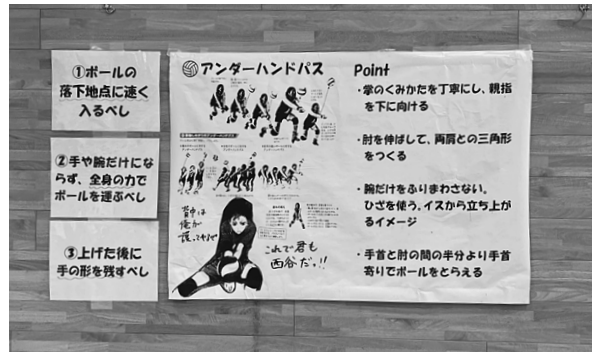 ①ボールの
落下地点に速く
入るべし
②手や腕だけにな
らず、全身の力で
ボールを運ぶべし
③上げた後に
手の形を残すべし
アンダーハンドパス
背中は
俺が
護ってやるぜ
これで君も
西谷だ。!!
Point
・掌のくみかたを丁寧にし、親指
を下に向ける
・肘を伸ばして、両肩との三角形
をつくる
・腕だけをふりまわさない。
ひざを使う。イスから立ち上が
るイメージ
・手首と肘の間の半分より手首
寄りでボールをとらえる